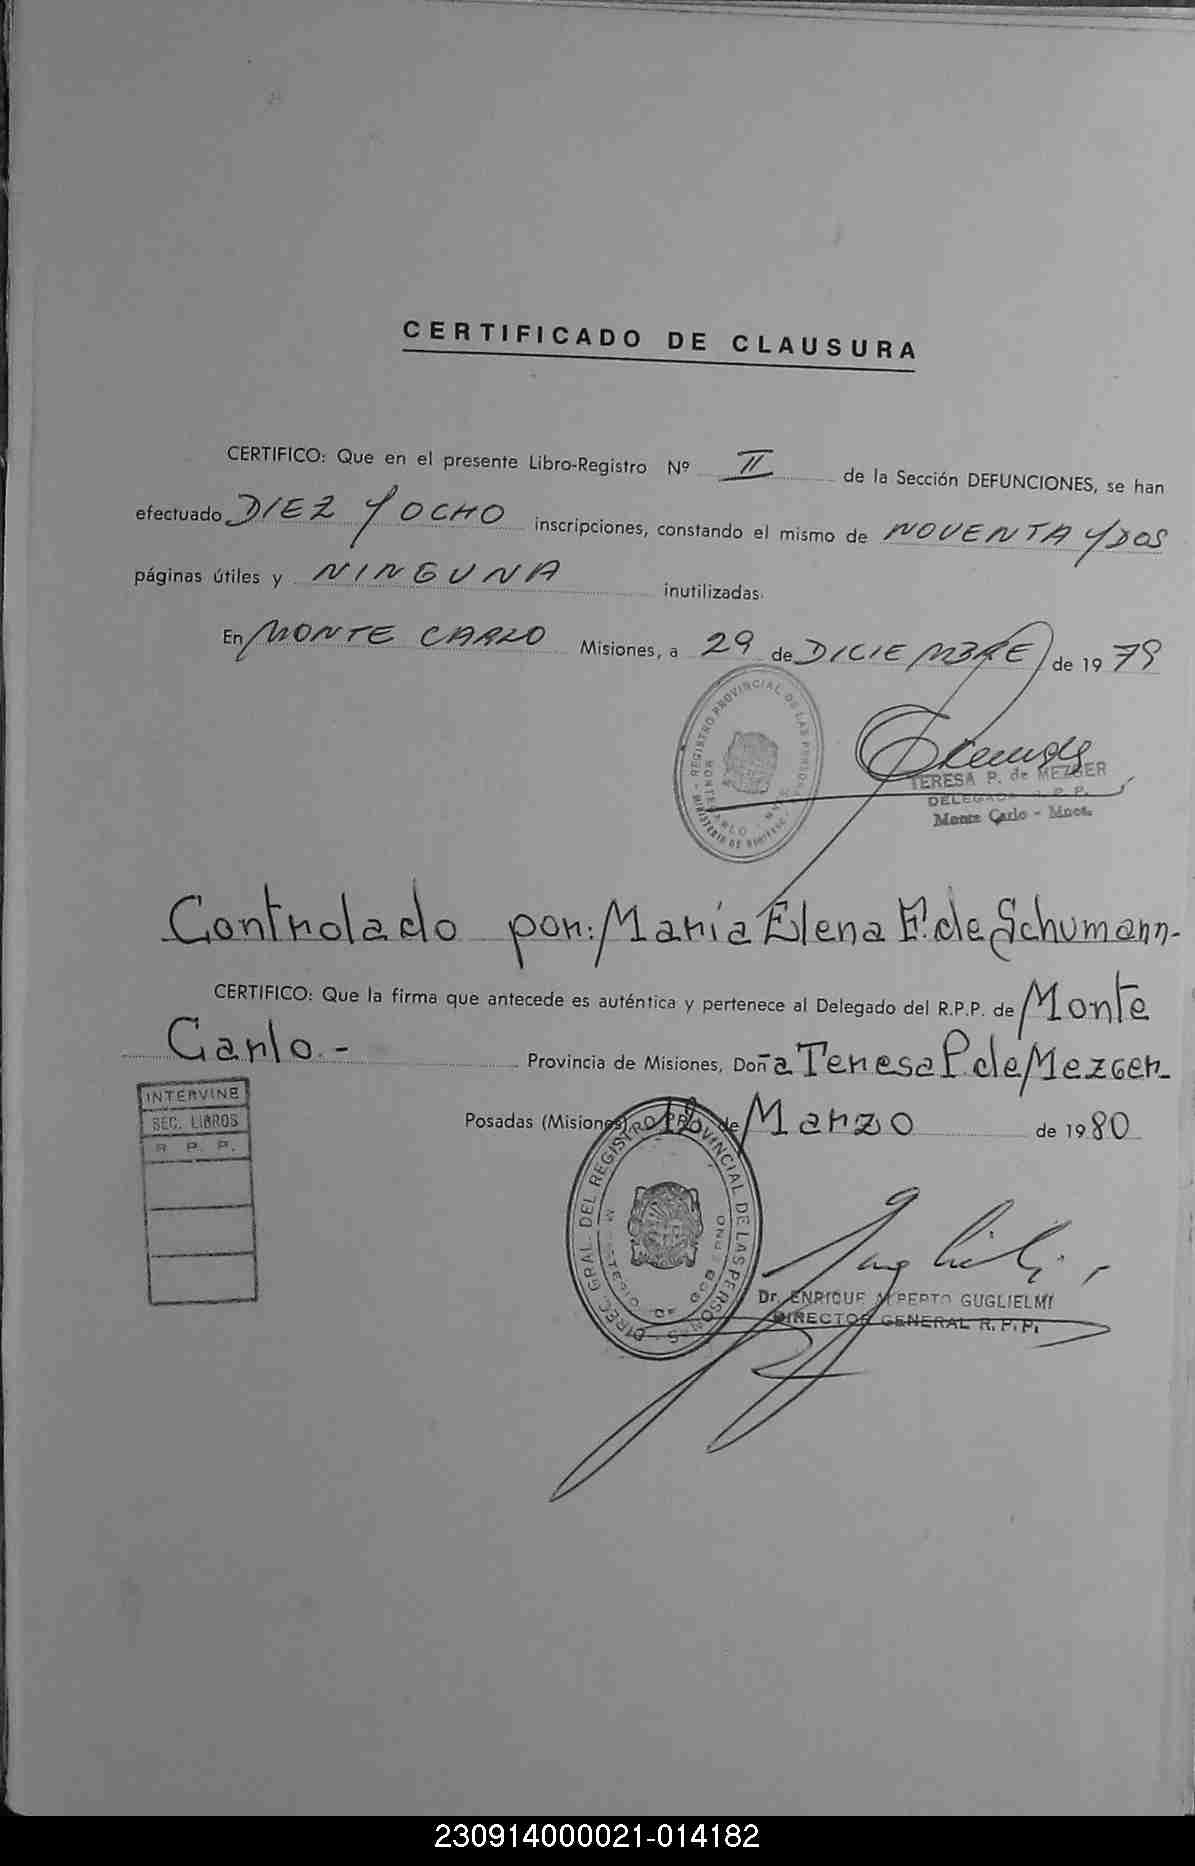 CERTIFICADO DE CLAUSURA
CERTIFICO: Que en el presente Libro-Registro Nº II de la Sección DEFUNCIONES, se han
efectuado DIEZ Y OCHO inscripciones, constando el mismo de NOVENTA Y DOS
páginas útiles y NINGUNA inutilizadas.
En MONTE CARLO Misiones, a 29 de DICIEMBRE de 1979
REGISTRO PROVINCIAL DE LAS PERSONAS
MONTECARLO
MINISTERIO DE
TERESA P. de MEZGER
DELEGADA R. P. P.
Monte Carlo - Mnes.
Controlado por: María Elena F. de Schumann.-
CERTIFICO: Que la firma que antecede es auténtica y pertenece al Delegado del R.P.P. de Monte
Carlo.- Provincia de Misiones, Doña Teresa P. de Mezger.
INTERVINE
SEC. LIBROS
R. P. P.
Posadas (Misiones), de Marzo de 1980
DIREC. GRAL. DEL REGISTRO PROVINCIAL DE LAS PERSONAS
MINISTERIO DE GOBIERNO
Dr. ENRIQUE ALBERTO GUGLIELMI
DIRECTOR GENERAL R. P. P.
230914000021-014182